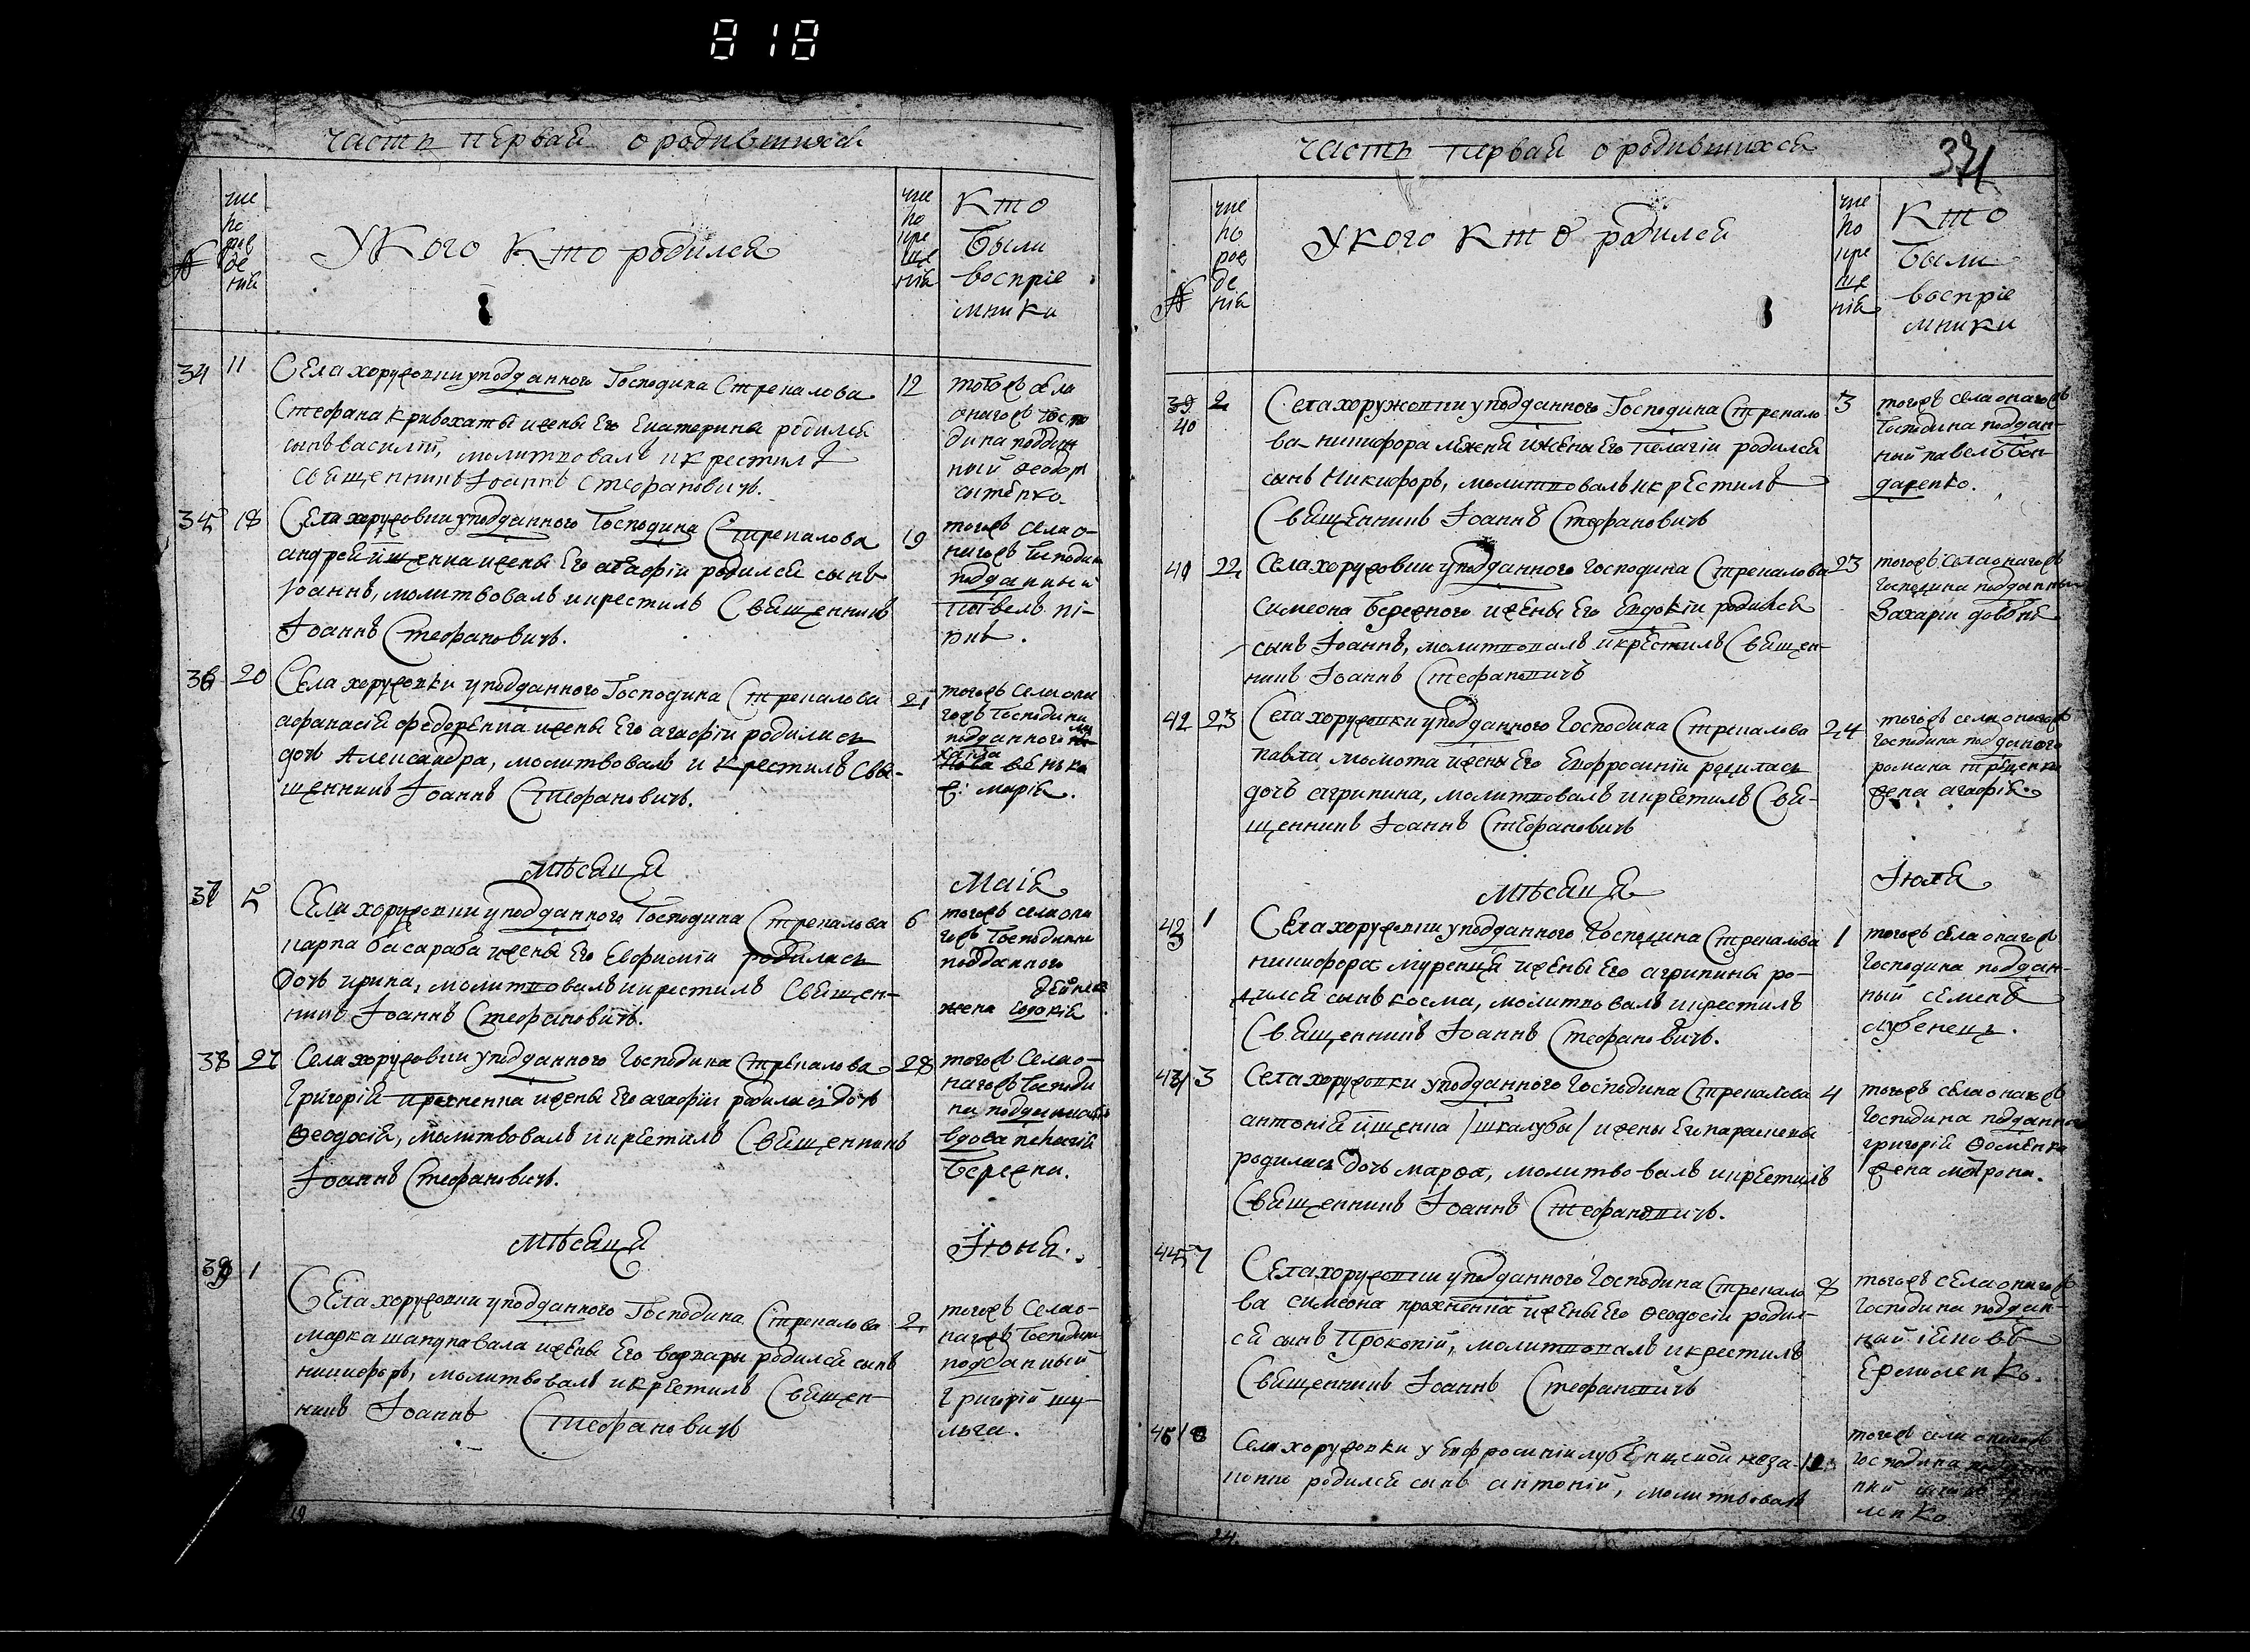 818
Часть первая о родившихся
№
чис
ло
рож
де
нія
У Кого Кто родился
чис
ло
кре
ще
нія
Кто
были
воспріе
мники
34 11 Села хоружовки у подданного Господина Стрепалова 12
Стефана Кривохаты и жены Его Екатерины родился
сынъ василій, молитвовалъ и крестилъ
Священникъ Іоаннъ Стефановичъ.
тогожъ села
оногожъ Госпо
дина поддан
ный Феодор
35 18 Села хоружовки у подданного Господина Стрепалова 19
андрея іщенка и жены Его агафіи родился сынъ
Іоаннъ, молитвовалъ и крестилъ Священникъ
Іоаннъ Стефановичъ.
тогожъ села о-
ногожъ Господин
подданный
36 20 Села хоружовки у подданного Господина Стрепалова 21
афанасія федоренка и жены Его агафіи родилась
дочь Александра, молитвовалъ и крестилъ Свя-
щенникъ Іоаннъ Стефановичъ.
тогожъ села оно
гожъ Господина
подданного
ж: марія.
Мѣсяца Маія
37 5 Села хоружовки у подданного Господина Стрепалова 6
карпа басараба и жены Его Евфиміи родилась
дочь ирина, молитвовалъ и крестилъ Священ-
никъ Іоаннъ Стефановичъ.
тогожъ села оно
гожъ Господина
подданного
жена Евдокія
38 27 Села хоружовки у подданного Господина Стрепалова 28
Григорія прохненка и жены Его агафіи родилась дочь
Феодосія, молитвовалъ и крестилъ Священникъ
Іоаннъ Стефановичъ.
тогожъ села о-
ногожъ Господи
на
вдова пелагія
Бережна.
Мѣсяца Іюня.
39 1 Села хоружовки у подданного Господина Стрепалова 2
марка шаповала и жены Его варвары родился сынъ
никифоръ, молитвовалъ и крестилъ Священ-
никъ Іоаннъ Стефановичъ
тогожъ села о-
ногожъ Господина
подданный
Григорій шу-
льга.
Часть первая о родившихся
371
№
чис
ло
рож
де
нія
У кого кто родился
чис
ло
кре
ще
нія
Кто
были
воспріе
мники
40 2 Села хоружовки у подданного Господина Стрепало- 3
ва никифора и жены Его пелагіи родился
сынъ Никифоръ, молитвовалъ и крестилъ
Священникъ Іоаннъ Стефановичъ
тогожъ села оногожъ
Господина поддан-
ный павелъ Бон-
даренко.
41 22 Села хоружовки у подданного Господина Стрепалова 23
Симеона Бережного и жены Его Евдокіи родился
сынъ Іоаннъ, молитвовалъ и крестилъ Священ-
никъ Іоаннъ Стефановичъ
тогожъ села оногожъ
Господина подданный
Захарій
42 23 Села хоружовки у подданного Господина Стрепалова 24
павла момота и жены Его Евфросиніи родилась
дочь агрипина, молитвовалъ и крестилъ Свя-
щенникъ Іоаннъ Стефановичъ
тогожъ села оногожъ
Господина подданого
романа
жена агафія
Мѣсяца Іюля
43 1 Села хоружовки у подданного Господина Стрепалова 1
никифора и жены Его агрипины ро-
дился сынъ косма, молитвовалъ и крестилъ
Священникъ Іоаннъ Стефановичъ.
тогожъ села оногожъ
Господина поддан-
ный семенъ
лубенецъ.
44 3 Села хоружовки у подданного Господина Стрепалова 4
антонія іщенка /шкалубы/ и жены Его
родилась дочь марфа, молитвовалъ и крестилъ
Священникъ Іоаннъ Стефановичъ.
тогожъ села оногожъ
Господина подданного
григорія Фоменка
жена мотрона.
45 7 Села хоружовки у подданного Господина Стрепало- 8
ва симеона прохненка и жены Его Феодосіи родил-
ся сынъ Прокопій, молитвовалъ и крестилъ
Священникъ Іоаннъ Стефановичъ
тогожъ села оногожъ
Господина поддан-
ный
Ермоленко.
46 Села хоружовки у Евфросиніи лубенцевой неза-
конно родился сынъ антоній, молитвовалъ
тогожъ села оногожъ
Господина